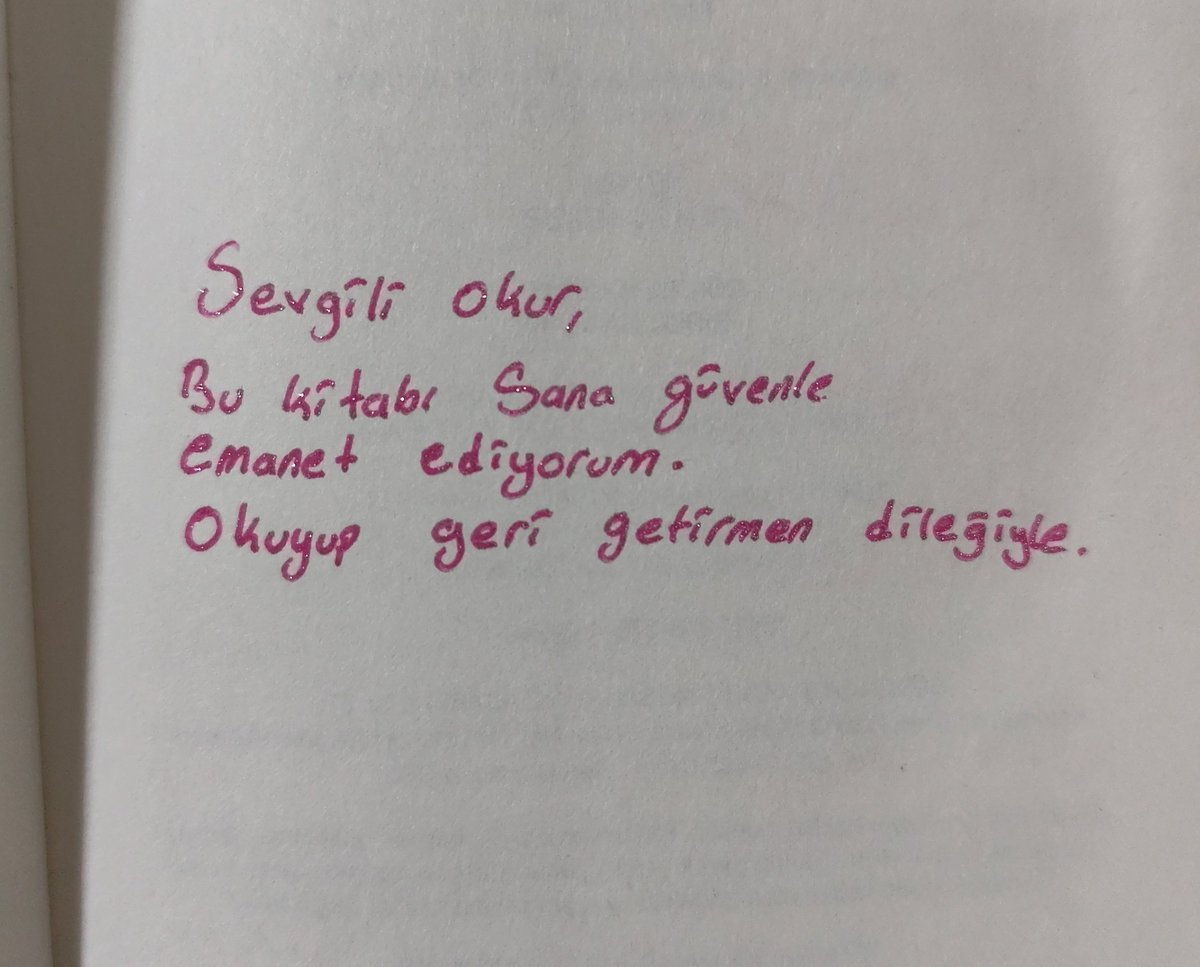 Sevgili okur,
Bu kitabı Sana güvenle
emanet ediyorum.
Okuyup geri getirmen dileğiyle.